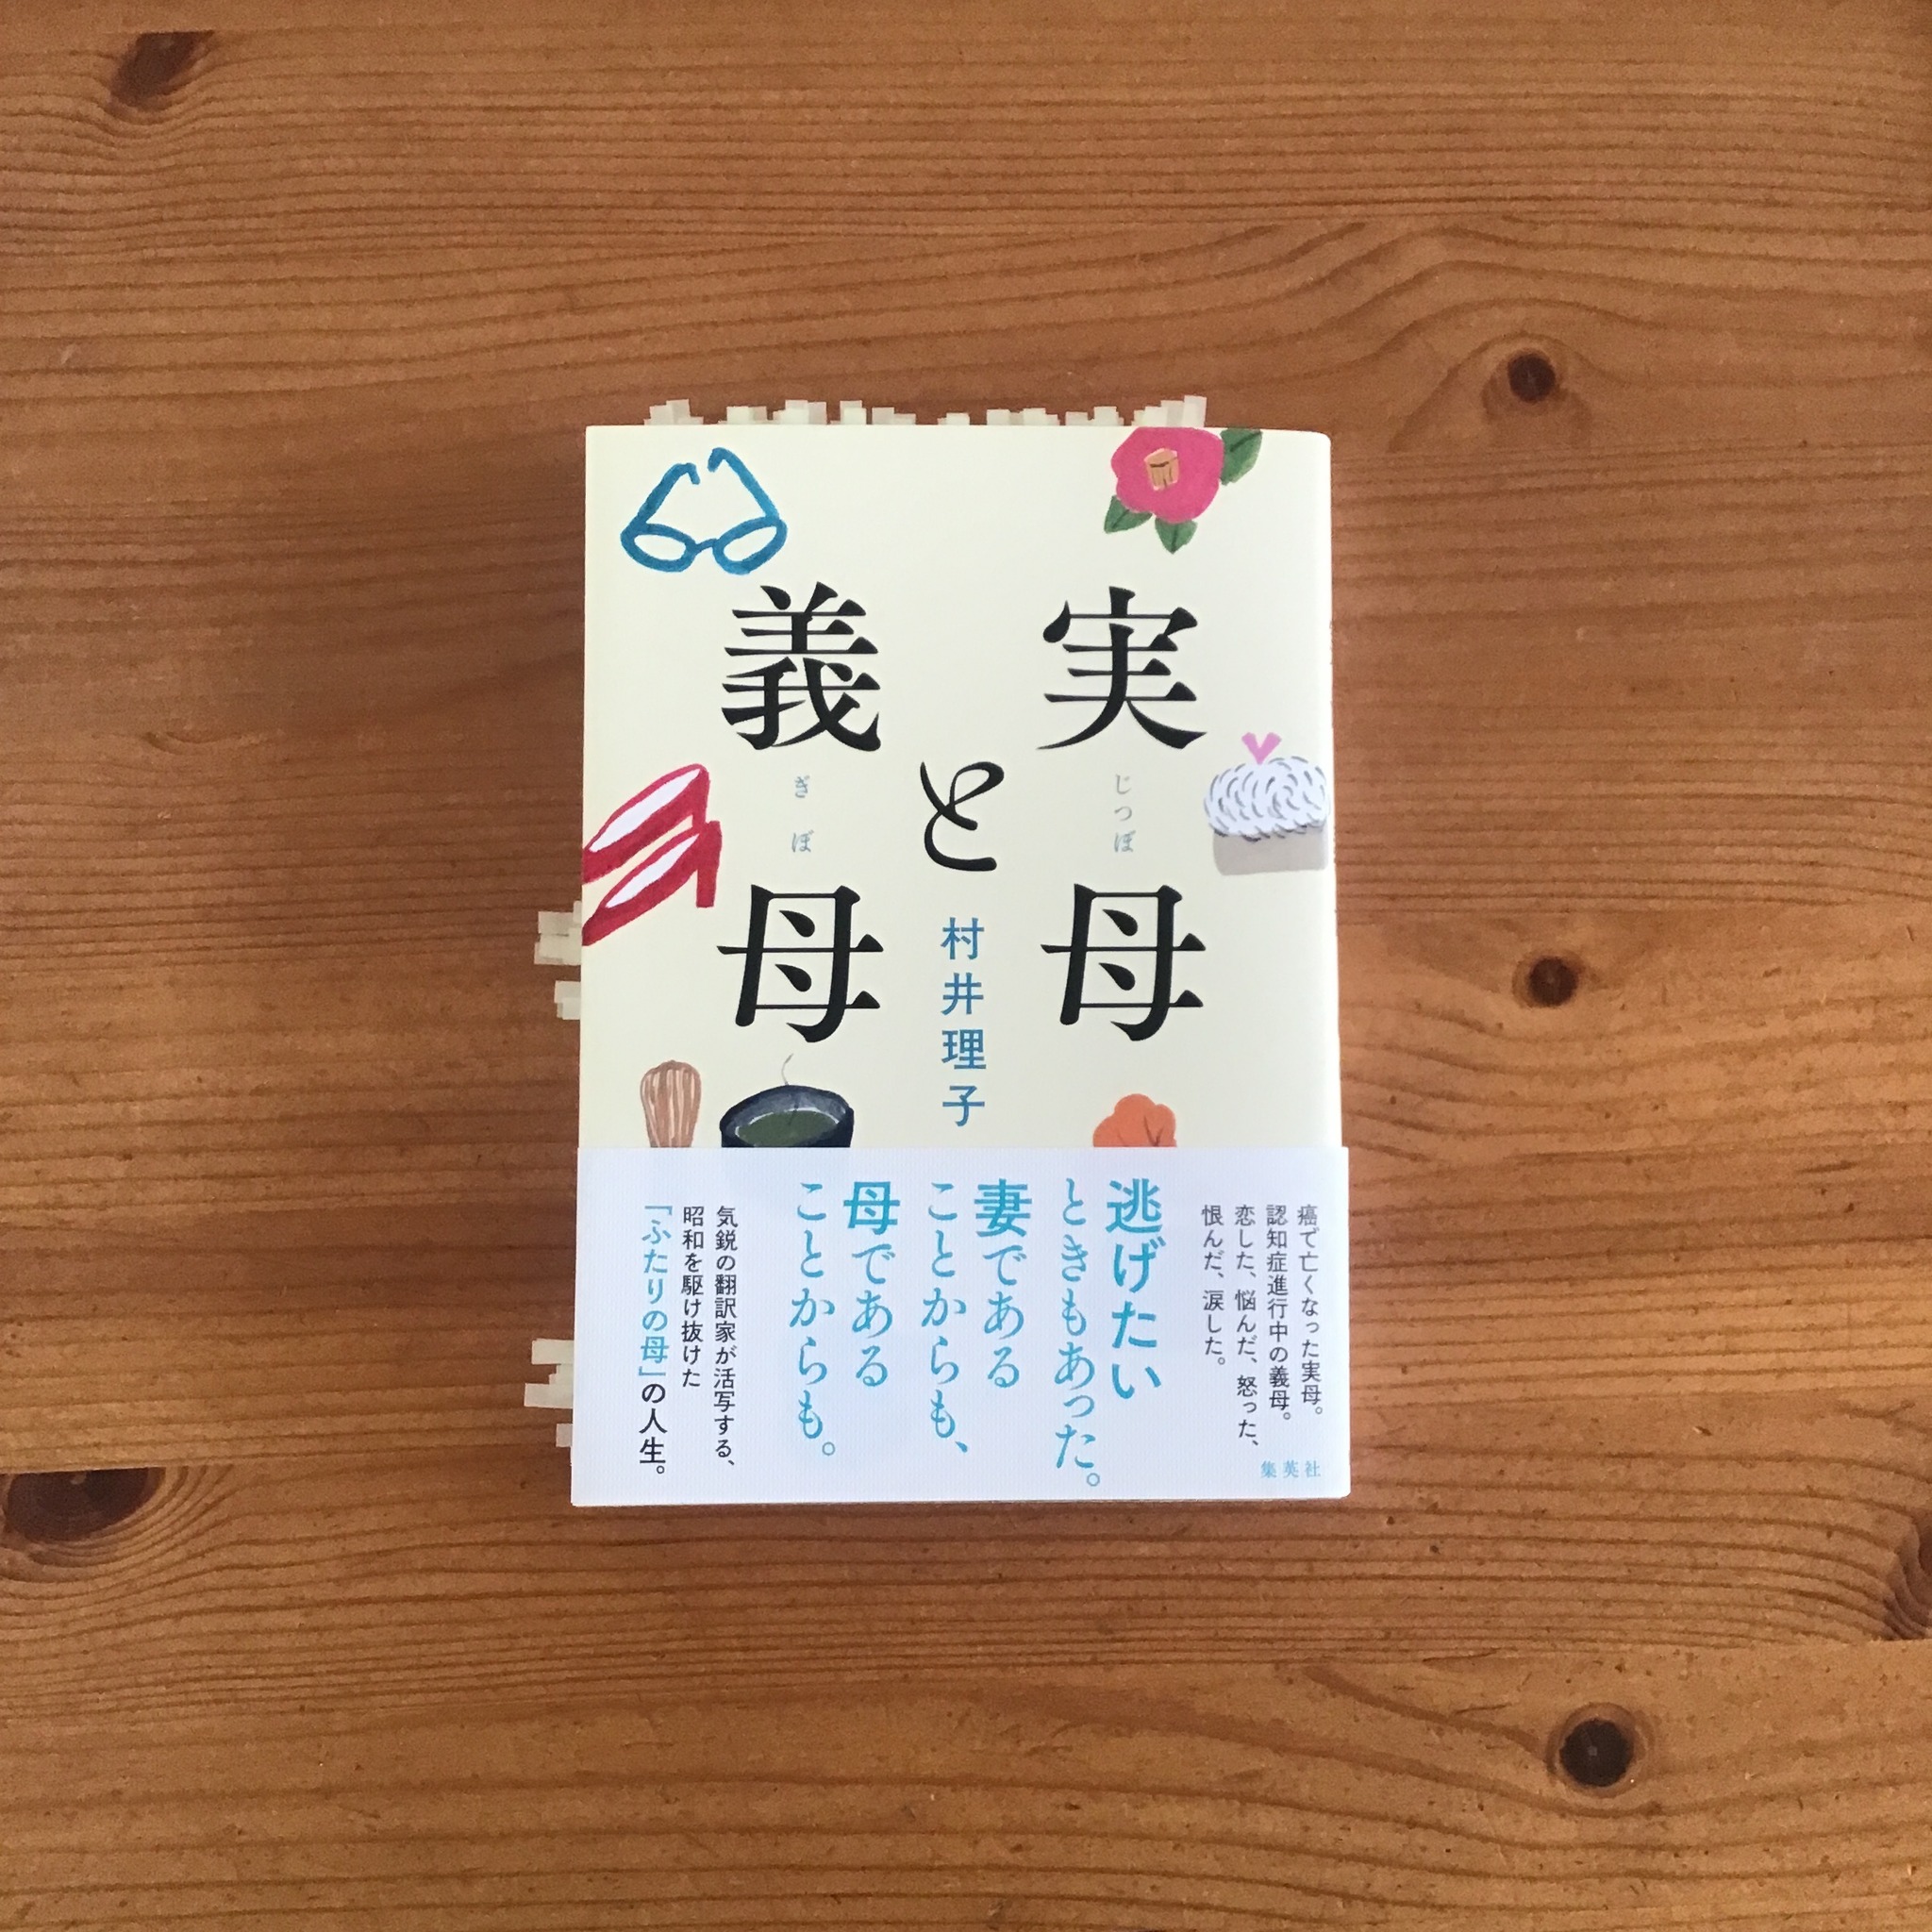 実母
じつぼ
と
義母
ぎぼ
村井理子
癌で亡くなった実母。
認知症進行中の義母。
恋した、悩んだ、怒った、
恨んだ、涙した。
逃げたい
ときもあった。
妻である
ことからも、
母である
ことからも。
気鋭の翻訳家が活写する、
昭和を駆け抜けた
「ふたりの母」の人生。
集英社